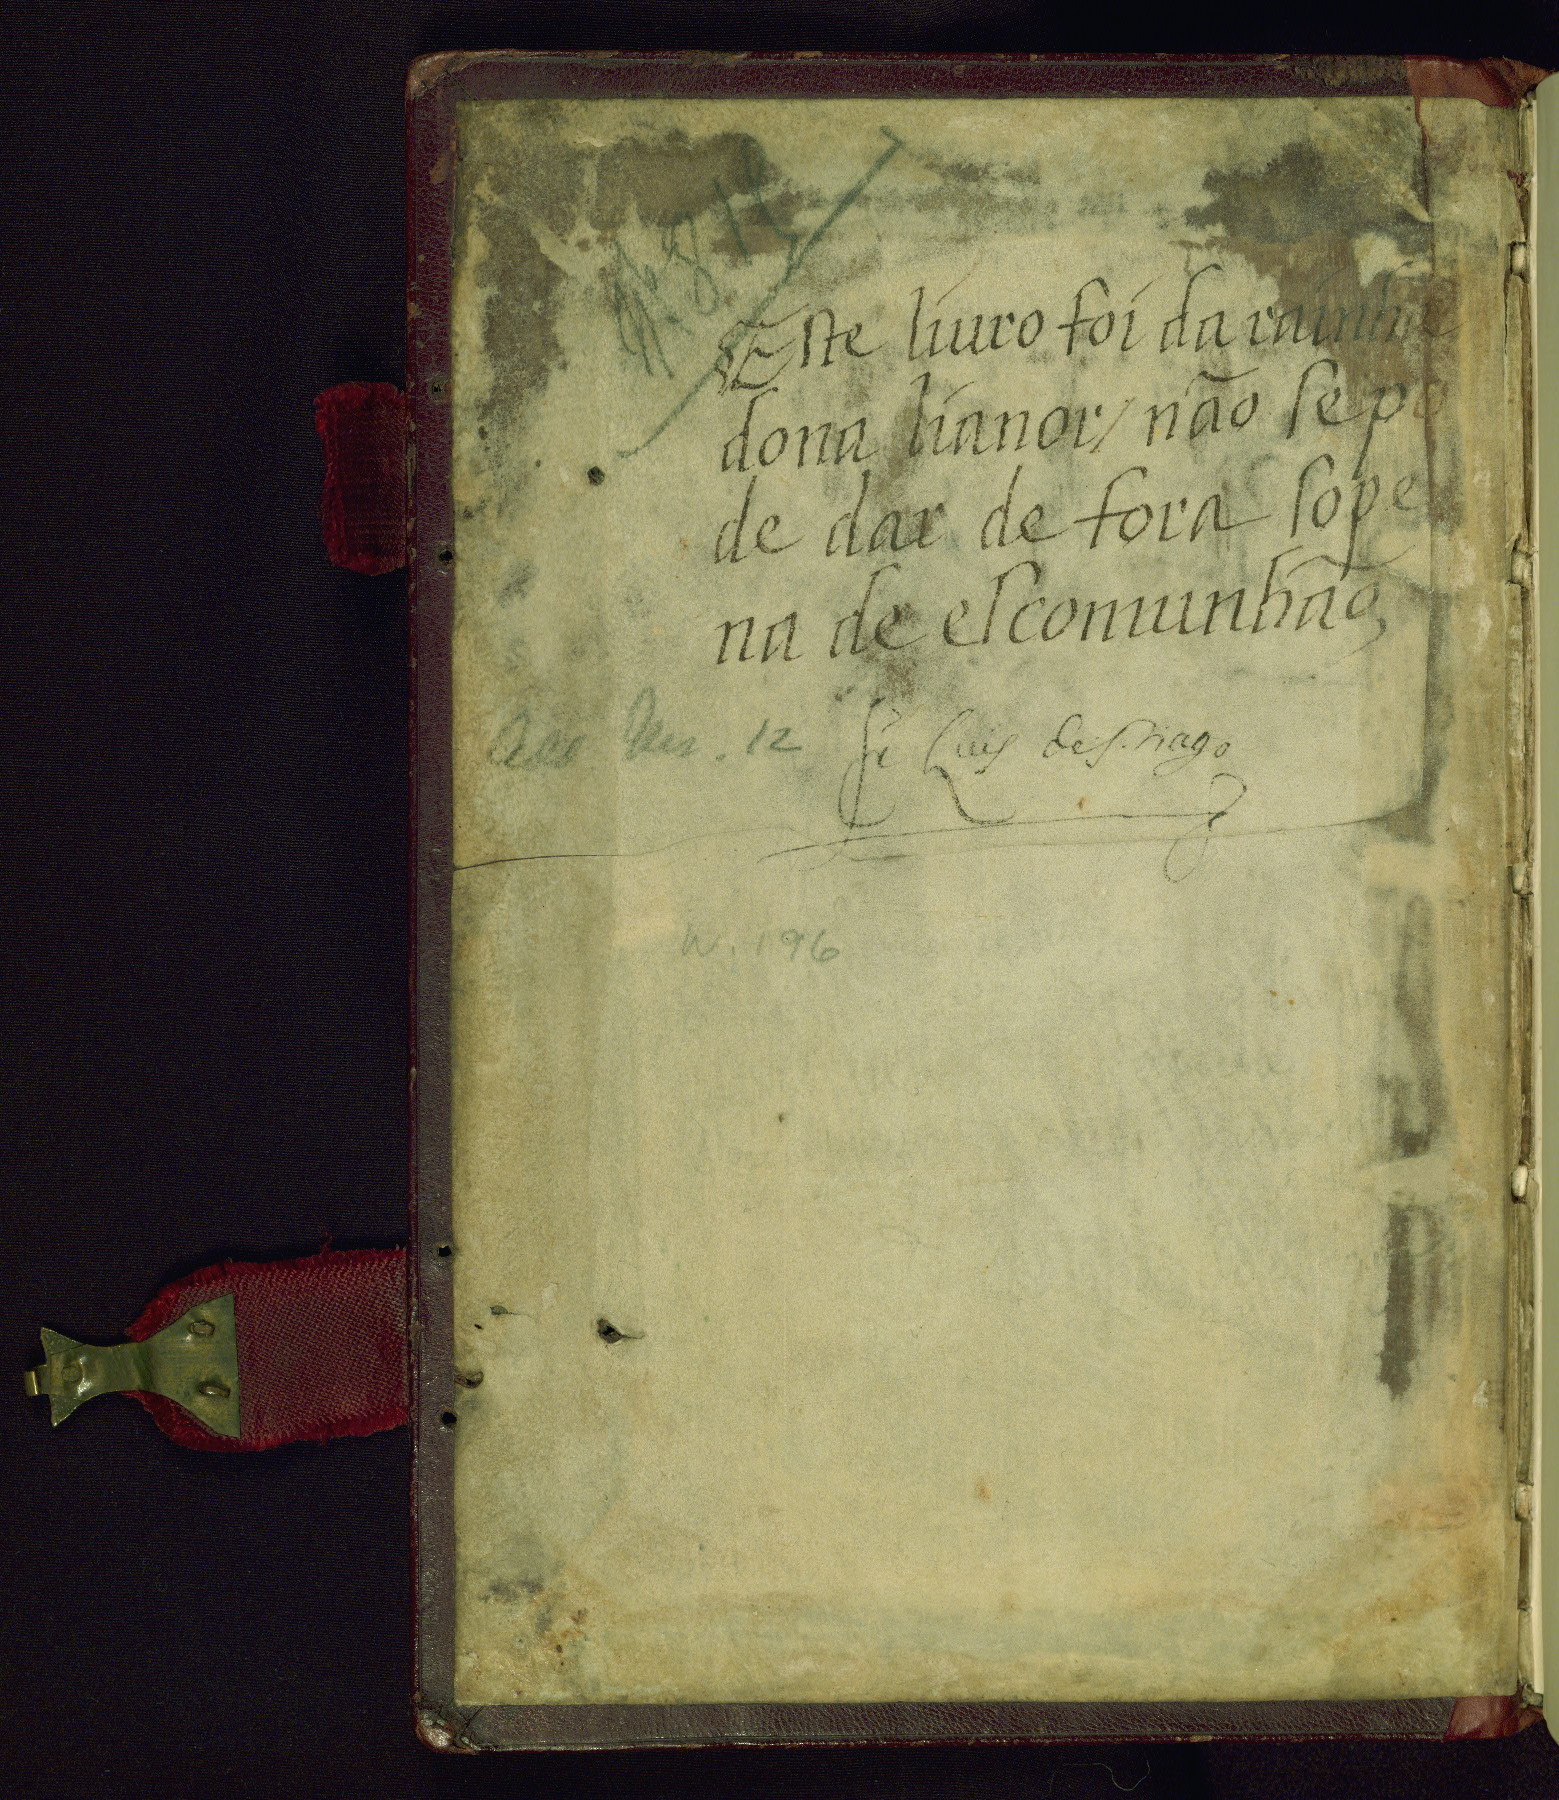 Este liuro foi da rainha
dona lianor/ não se po
de dar de fora sope
na de escomunhão
12 fr Luis de S. Tiago
W. 196